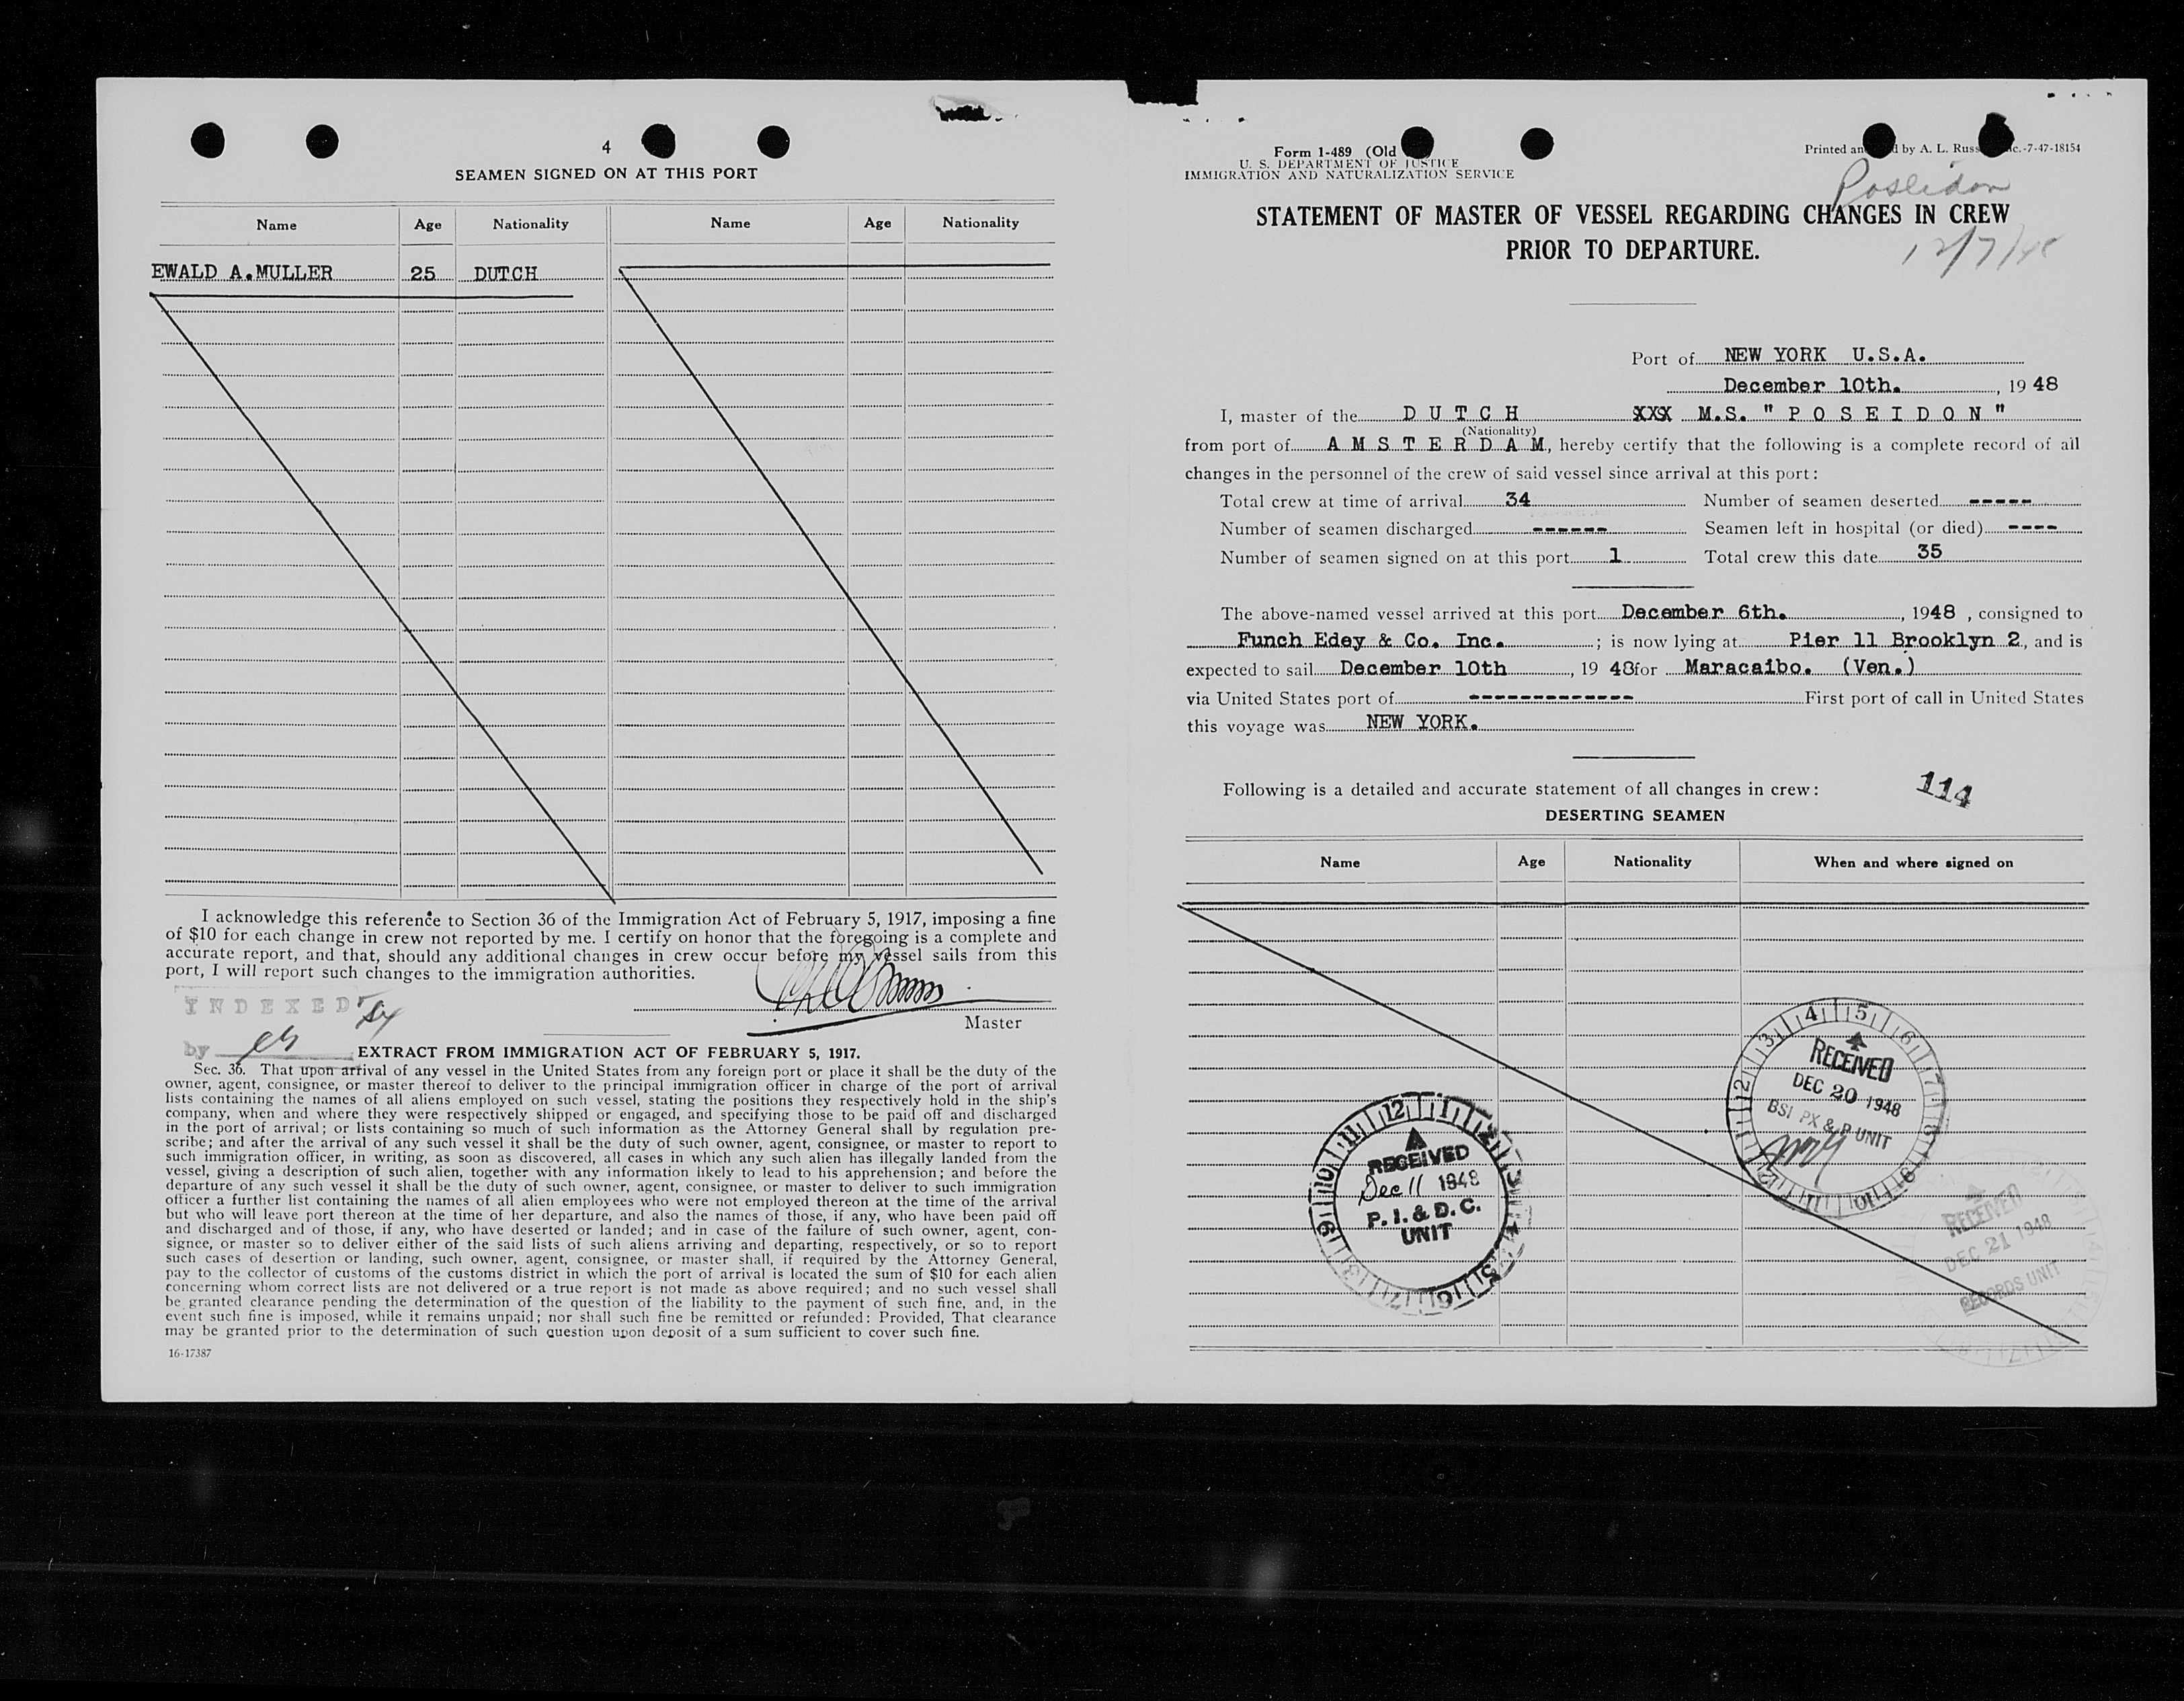 4
SEAMEN SIGNED ON AT THIS PORT
Name Age Nationality Name Age Nationality
EWALD A.MULLER 25 DUTCH
I acknowledge this reference to Section 36 of the Immigration Act of February 5, 1917, imposing a fine
of $10 for each change in crew not reported by me. I certify on honor that the foregoing is a complete and
accurate report, and that, should any additional changes in crew occur before my vessel sails from this
port, I will report such changes to the immigration authorities.
INDEXED
Master
by
EXTRACT FROM IMMIGRATION ACT OF FEBRUARY 5, 1917.
Sec. 36. That upon arrival of any vessel in the United States from any foreign port or place it shall be the duty of the
owner, agent, consignee, or master thereof to deliver to the principal immigration officer in charge of the port of arrival
lists containing the names of all aliens employed on such vessel, stating the positions they respectively hold in the ship's
company, when and where they were respectively shipped or engaged, and specifying those to be paid off and discharged
in the port of arrival; or lists containing so much of such information as the Attorney General shall by regulation pre-
scribe; and after the arrival of any such vessel it shall be the duty of such owner, agent, consignee, or master to report to
such immigration officer, in writing, as soon as discovered, all cases in which any such alien has illegally landed from the
vessel, giving a description of such alien, together with any information likely to lead to his apprehension; and before the
departure of any such vessel it shall be the duty of such owner, agent, consignee, or master to deliver to such immigration
officer a further list containing the names of all alien employees who were not employed thereon at the time of the arrival
but who will leave port thereon at the time of her departure, and also the names of those, if any, who have been paid off
and discharged and of those, if any, who have deserted or landed; and in case of the failure of such owner, agent, con-
signee, or master so to deliver either of the said lists of such aliens arriving and departing, respectively, or so to report
such cases of desertion or landing, such owner, agent, consignee, or master shall, if required by the Attorney General,
pay to the collector of customs of the customs district in which the port of arrival is located the sum of $10 for each alien
concerning whom correct lists are not delivered or a true report is not made as above required; and no such vessel shall
be granted clearance pending the determination of the question of the liability to the payment of such fine, and, in the
event such fine is imposed, while it remains unpaid; nor shall such fine be remitted or refunded: Provided, That clearance
may be granted prior to the determination of such question upon deposit of a sum sufficient to cover such fine.
16-17387
Form 1-489 (Old
U. S. DEPARTMENT OF JUSTICE
IMMIGRATION AND NATURALIZATION SERVICE
Printed an by A. L. Russ nc.-7-47-18154
Poseidon
STATEMENT OF MASTER OF VESSEL REGARDING CHANGES IN CREW
PRIOR TO DEPARTURE.
12/7/48
Port of NEW YORK U.S.A.
December 10th. , 19 48
I, master of the D U T C H XXX M.S. " P O S E I D O N "
(Nationality)
from port of A M S T E R D A M, hereby certify that the following is a complete record of all
changes in the personnel of the crew of said vessel since arrival at this port:
Total crew at time of arrival 34 Number of seamen deserted -----
Number of seamen discharged ------ Seamen left in hospital (or died) ----
Number of seamen signed on at this port 1 Total crew this date 35
The above-named vessel arrived at this port December 6th. , 1948 , consigned to
Funch Edey & Co. Inc. ; is now lying at Pier 11 Brooklyn 2, and is
expected to sail December 10th , 19 48for Maracaibo. (Ven.)
via United States port of ------------- First port of call in United States
this voyage was NEW YORK.
Following is a detailed and accurate statement of all changes in crew:
114
DESERTING SEAMEN
Name Age Nationality When and where signed on
RECEIVED
DEC 20 1948
BSI PX & P UNIT
RECEIVED
Dec 11 1948
P. I. & D. C.
UNIT
RECEIVED
DEC 21 1948
RECORDS UNIT